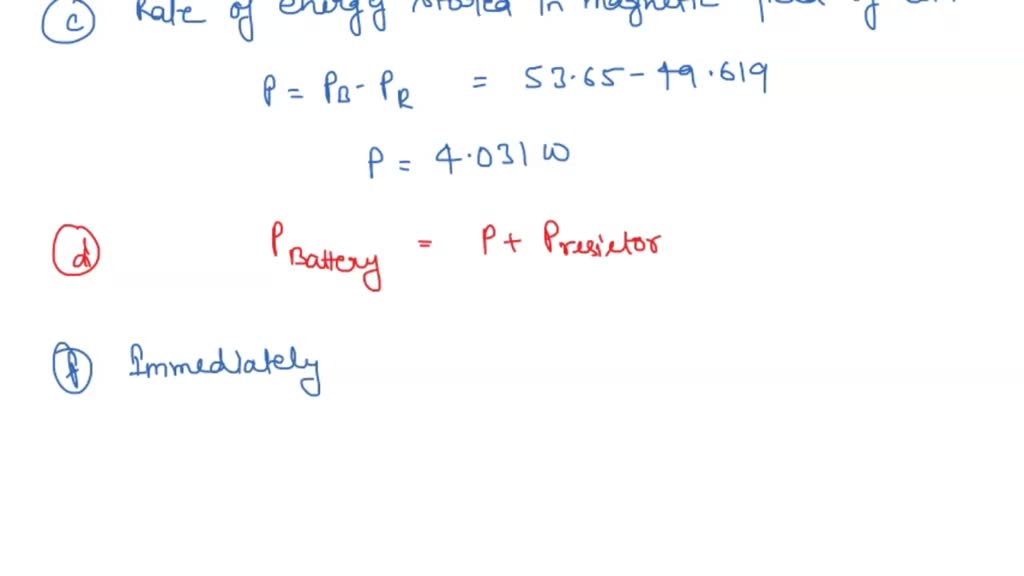 (c) Rate of energy stored in magnetic field of
P = PB - PR = 53.65 - 49.619
P = 4.031 W
(d) PBattery = P + Presistor
(f) Immediately